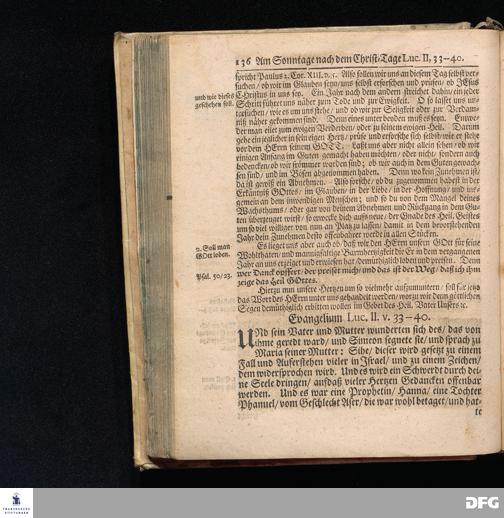 136 Am Sonntage nach dem Christ/Tage Luc. II, 33-40.
spricht Paulus 2. Cor. XIII. v. 5. Also sollen wir uns an diesem Tag selbst ver-
suchen/ ob wir im Glauben seyn/ uns selbst erforschen und prüfen/ ob JEsus
und wie dieses geschehen soll.
Christus in uns sey. Ein Jahr nach dem andern streichet dahin/ ein jeder
Schritt führet uns näher zum Tode und zur Ewigkeit. O so lasset uns un-
tersuchen/ wie es um uns stehe/ und ob wir zur Seligkeit oder zur Verdam-
niß näher gekommen sind. Denn eines unter beyden muß es seyn. Entwe-
der man eilet zum ewigen Verderben/ oder zu seinem ewigen Heil. Darum
gehe ein jeglicher in sein eigen Hertz/ prüfe und erforsche sich selbst/ wie er stehe
vor dem HErrn seinem GOTT. Laßt uns aber nicht allein sehen/ ob wir
einigen Anfang im Guten gemacht haben möchten/ oder nicht/ sondern auch
bedencken/ ob wir frömmer worden sind; ob wir auch in dem Guten gewach-
sen sind/ und im Bösen abgenommen haben. Denn wo kein Zunehmen ist/
da ist gewiß ein Abnehmen. Also forsche/ ob du zugenommen habest in der
Erkäntniß GOttes/ im Glauben/ in der Liebe/ in der Hoffnung/ und ins-
gemein an dem inwendigen Menschen; und so du von dem Mangel deines
Wachsthums/ oder gar von deinem Abnehmen und Rückgang in dem Gu-
ten überzeuget wirst/ so erwecke dich aufs neue/ der Gnade des Heil. Geistes
um so viel williger von nun an Platz zu lassen/ damit in dem bevorstehenden
Jahr dein Zunehmen desto offenbahrer werde in allen Stücken.
2. Soll man GOtt loben.
Es lieget uns aber auch ob/ daß wir den HErrn unsern GOtt für seine
Wohlthaten/ und mannigfaltige Barmhertzigkeit die Er in der vergangenen
Jahr an uns erzeiget und erwiesen hat/ demüthiglich loben und preisen. Denn
Psal. 50/23.
wer Danck opffert/ der preiset mich/ und das ist der Weg/ daß ich ihm
zeige das Heil GOttes.
Hierzu nun unsere Hertzen um so vielmehr aufzumuntern/ soll für jetzo
das Wort des HErrn unter uns gehandelt werden/ worzu wir denn göttlichen
Segen demüthiglich erbitten wollen im Gebet des Heil. Vater Unsers &c.
Evangelium Luc. II. v. 33-40.
UNd sein Vater und Mutter wunderten sich des/ das von
ihme geredt ward/ und Simeon segnete sie/ und sprach zu
Maria seiner Mutter: Sihe/ dieser wird gesetzt zu einem
Fall und Auferstehen vieler in Israel/ und zu einem Zeichen/
dem widersprochen wird. Und es wird ein Schwerdt durch dei-
ne Seele dringen/ aufdaß vieler Hertzen Gedancken offenbar
werden. Und es war eine Prophetin/ Hanna/ eine Tochter
Phanuel/ vom Geschlecht Aser/ die war wohl betaget/ und hat-
te
FRANCKESCHE STIFTUNGEN
DFG